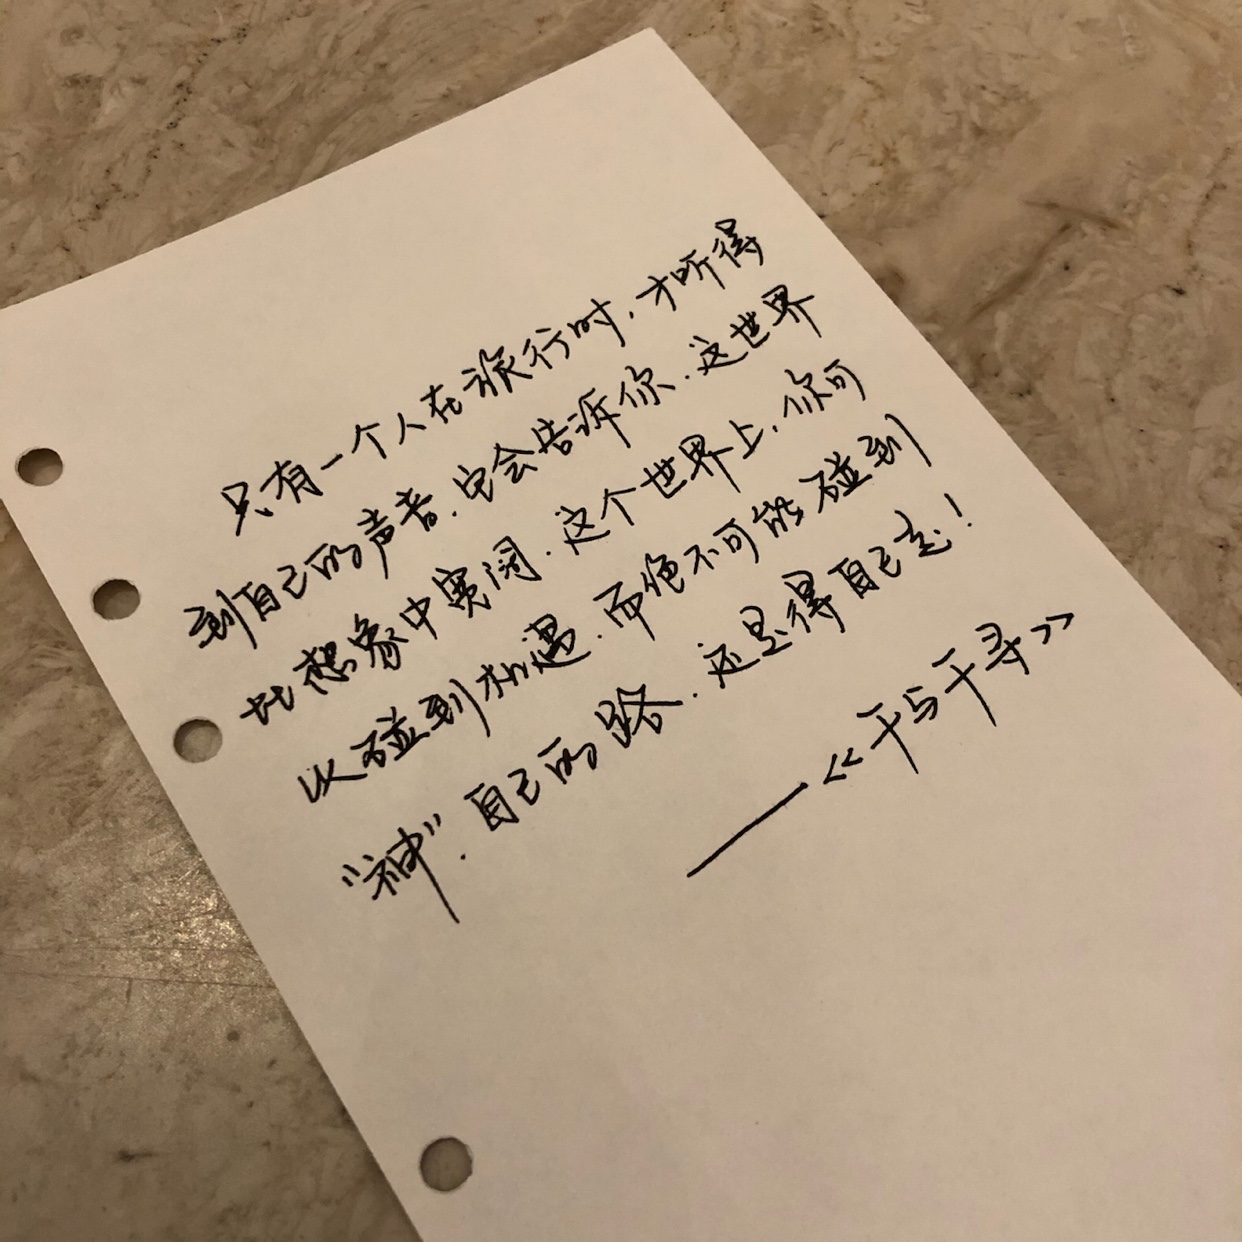 只有一个人在旅行时,才听得
到自己的声音.它会告诉你.这世界
比想象中宽阔.这个世界上,你可
以碰到相遇.而绝不可能碰到
“神”.自己的路.还是得自己走!
——《千与千寻》